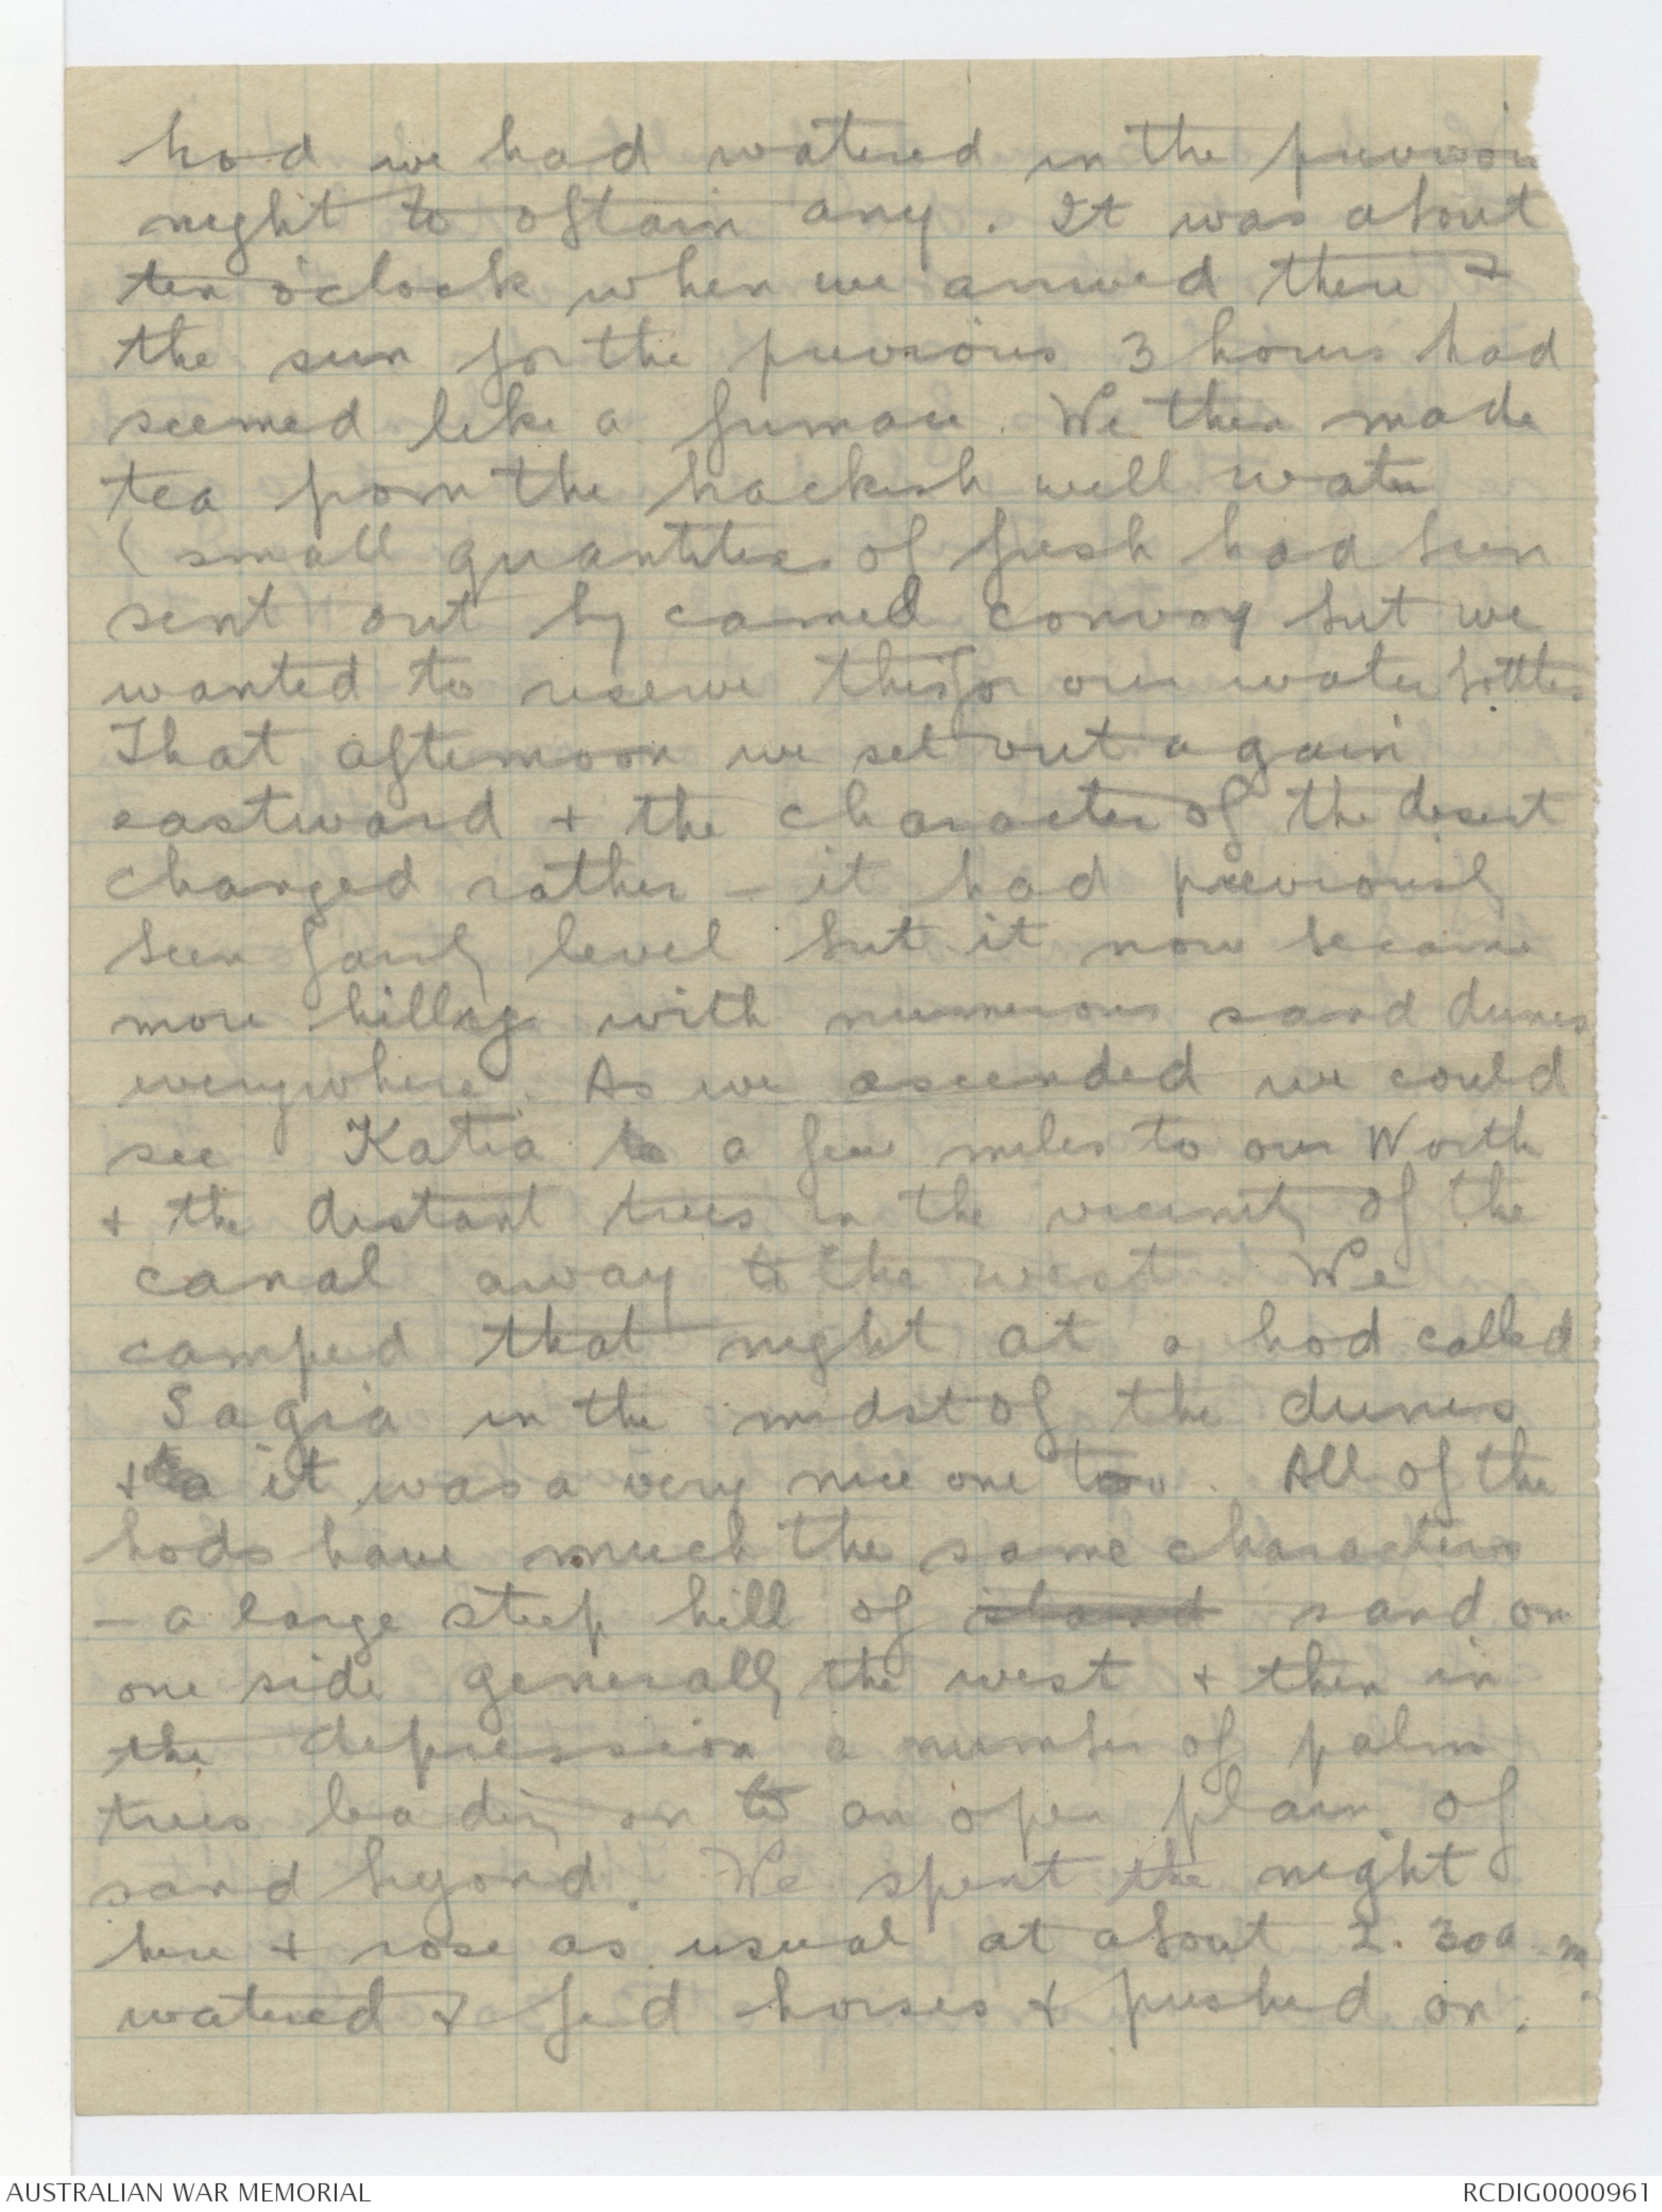 hod we had watered in the previou
night to obtain any. It was about
ten o'clock when we arrived there &
the sun for the previous 3 hours had
seemed like a furnace. We then made
tea from the brackish well water
(small quantities of fresh had been
sent out by camel convoy but we
wanted to reserve this for our water bottles.
That afternoon we set out again
eastward + the character of the desert
changed rather - it had previously
been fairly level but it now became
more hilly with numerous sand dunes
everywhere. As we ascended we could
see Katia a few miles to our North
+ the distant trees in the vicinity of the
canal away to the west. We
camped that night at a hod called
Sagia in the midst of the dunes
+ it was a very nice one too. All of the
hods have much the same characters
- a large steep hill of sand on
one side generally the west + then in
the depression a number of palm
trees leading on to an open plain of
sand beyond. We spent the night
here + rose as usual at about 2.30 a.m
watered & fed horses & pushed on.
AUSTRALIAN WAR MEMORIAL
RCDIG0000961